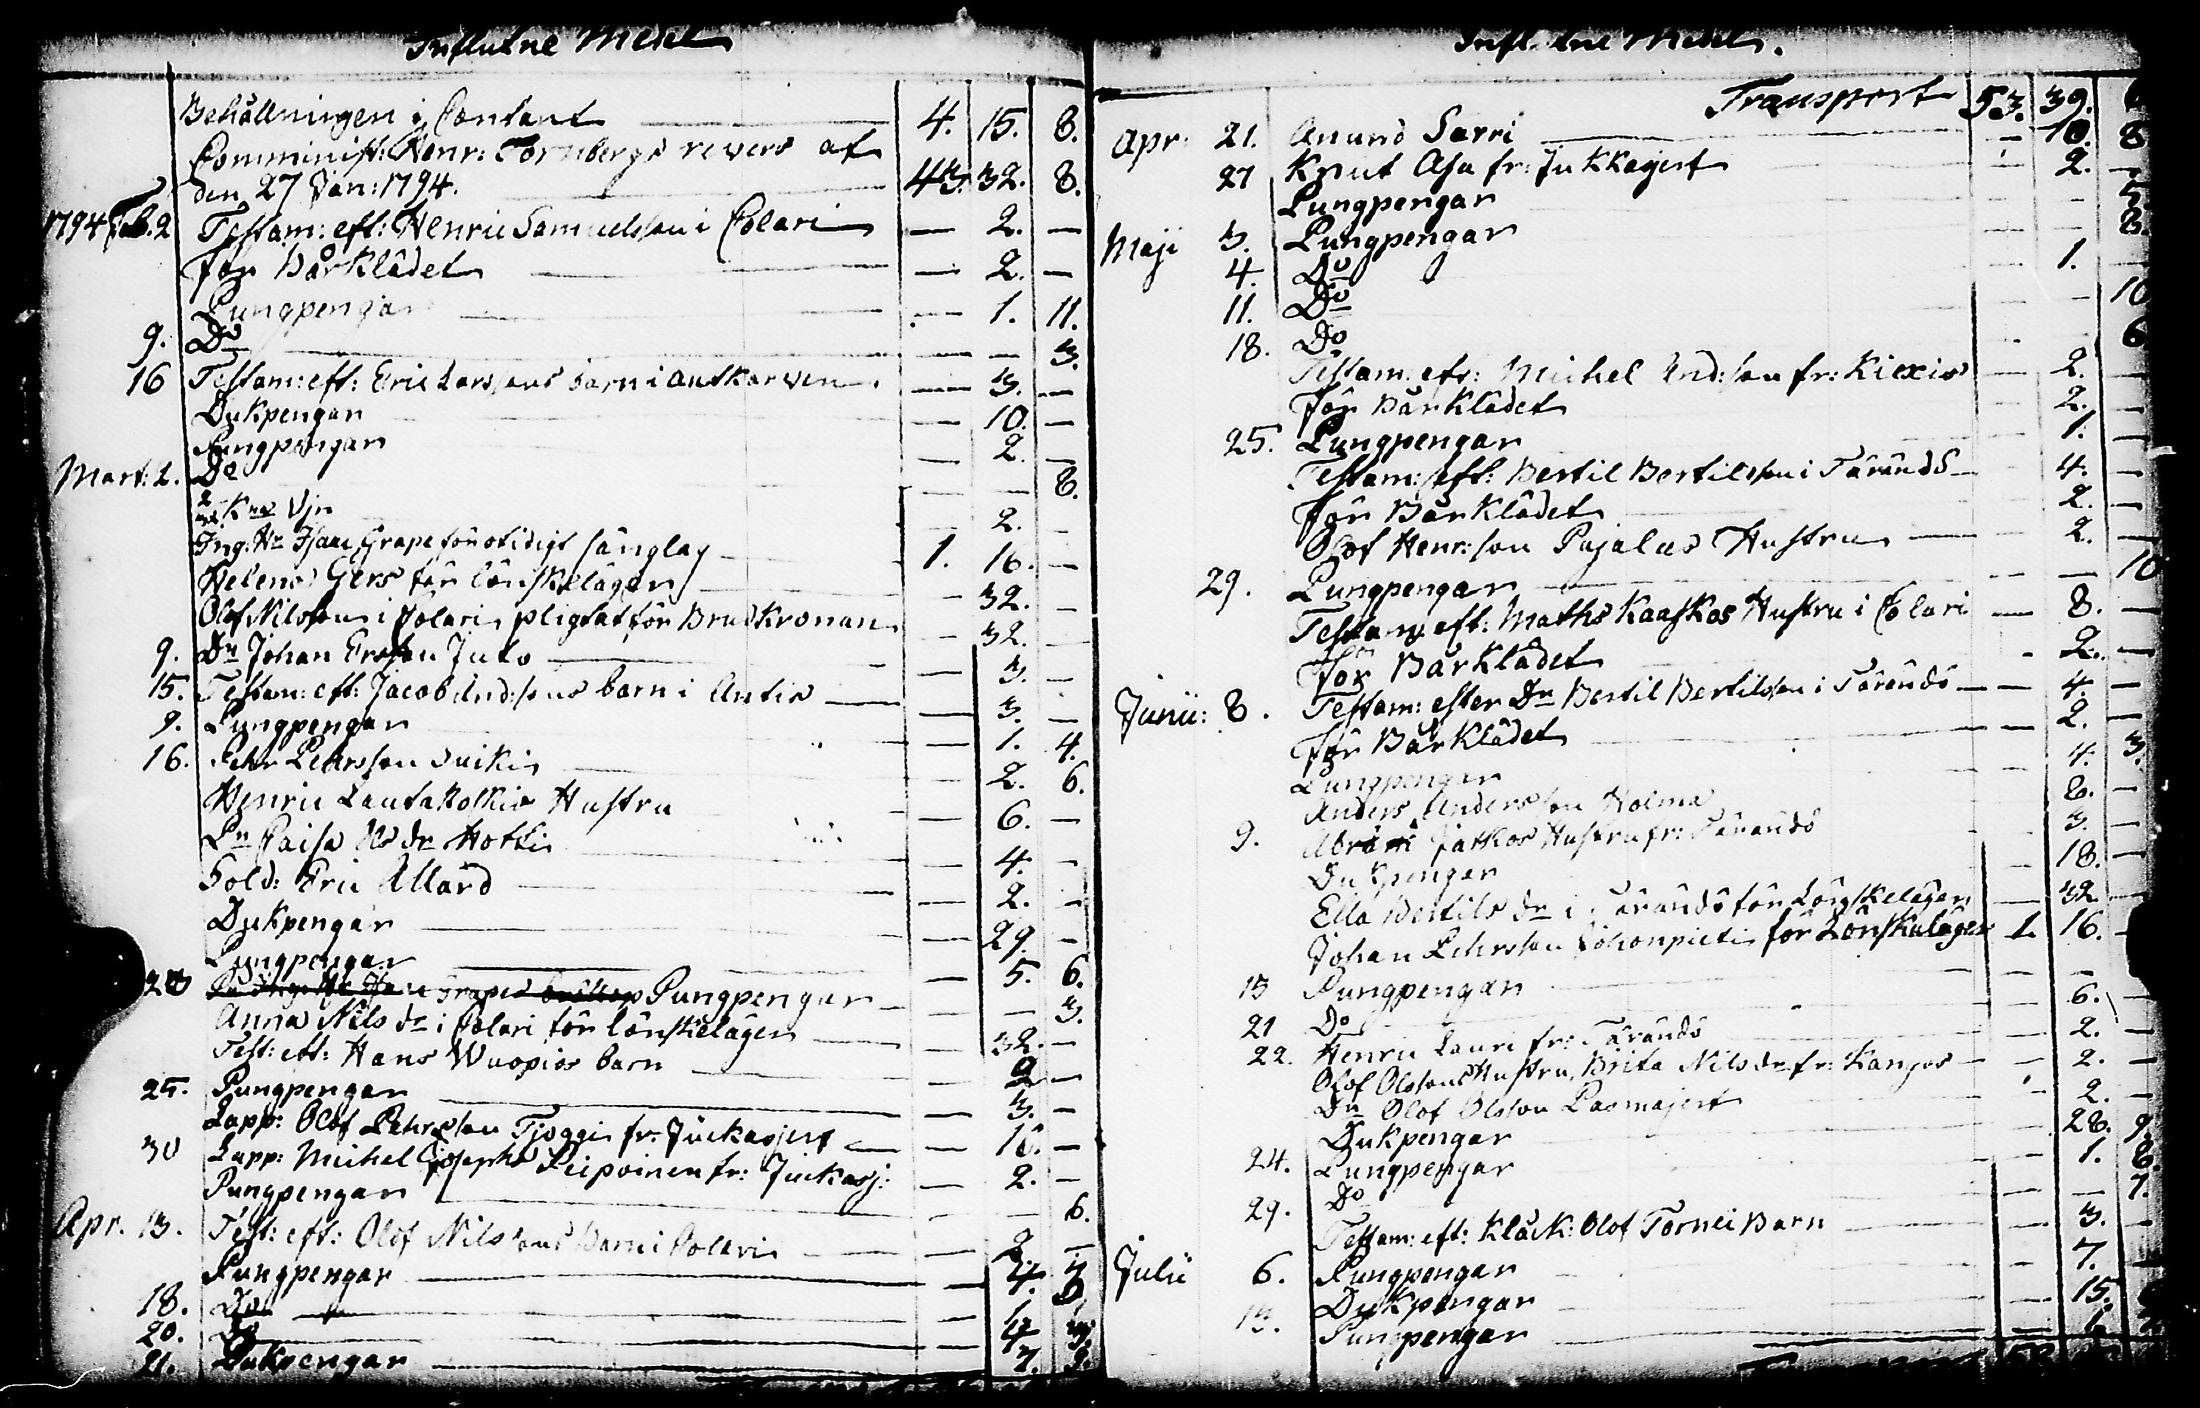 Influtne Medel
Behållningen i Contant 4. 15. 8.
Comminist: Henr: Fornbergs revers af
den 27 Jan: 1794. 43. 32. 8.
1794 Feb. 2 Testam: eft: Henric Samuelsson i Colari — 2. —
för Bårklädet — 2. —
Pungpengar — 1. 11.
9. Do — — 3.
16 Testam: eft: Eric Larssons barn i Autkarven — 3. —
Dukpengar — 10. —
Pungpengar — 2. —
Mart: 2. Do — — 8.
2. —
Ing: Hr Isaac Grape för otidigt sänglag 1. 16. —
Helena Gers för lönskeläger — 32. —
Olof Nilsson i Colari pligtat för Brudkronan — 32. —
9. Dn Johan Ersson Juto — 3. —
15. Testam: eft: Jacob And:sons barn i Antis — 3. —
9. Pungpengar — 1. 4.
16. Pehr Pehrsson Suikis — 2. 6.
Henric Lautakoskis Hustru — 6. —
Pn Caisa dr Hotti — 4. —
Sold: Eric Allard — 2. —
Dukpengar — 29. —
Pungpengar — 5. 6.
Pungpengar — — 3.
Anna Nils dr i Colari för lönskeläger — 32. —
Test: eft: Hans Wuopios barn — 2 —
25. Pungpengar — 3. —
Lapp: Olof Pehrsson Tjoggi fr: Juckasjerf — 16. —
30 Lapp: Michel Josephs Peipoinen fr: Juckasj: — 2. —
Pungpengar — — 6.
Apr. 13. Test: eft: Olof Nilssons Barn i Colari — 2 —
Pungpengar — 4.
18. Do — 1.
20. Do — 4
21. Dukpengar — 7. 9.
Infl tne Medel.
Transport 53. 39.
Apr: 21. Anund Sarri — 10. 8
27 Knut Asu fr: Jukkasjerf — 2. —
Pungpengar — — 5.
Maji 3. Pungpengar — — 8.
4. Do — 1. —
11. Do — — 10
18. Do — — 6
Testam: eft: Michel And:son fr: Kiexis — 2. —
för Bårklädet — 2. —
25. Pungpengar — 1. —
Testam: eft: Bertil Bertilsson i Tärändö — 4. —
för Bårklädet — 2. —
Olof Henr:son Pajalas Hustru — 2. —
29. Pungpengar — — 10
Testam eft: Maths Kaaskos Hustru i Colari — 8. —
för Bårklädet — 2. —
Junii: 8. Testam: efter Dn Bertil Bertilsson i Tärändö — 4. —
för Bårklädet — 2. —
Pungpengar 4. 3.
Anders Andersson Hoima 8. —
9. Abram Jatkos Hustru fr: Tärändö 3. —
Dukpengar — 18. —
Ella Bertils dr i Tärändö för Lönskeläger — 32 —
Johan Pehrsson Johonpieti för Lönskeläger 1. 16. —
15 Pungpengar — —
21 Do — 6. —
22. Henric Lauri fr: Tärändö — 2. —
Olof Olssons Hustru Brita Nils dr fr: Kangos — 2. —
Dn Olof Olsson Pasmajerf 2. —
Dukpengar 28. 9.
24. Pungpengar 1. 8.
29. Do — — 7.
Testam: eft: Klåck: Olof Tornei Barn — 3. —
Julii 6. Pungpengar — 7. —
Dukpengar — 15.
13. Pungpengar — 1.